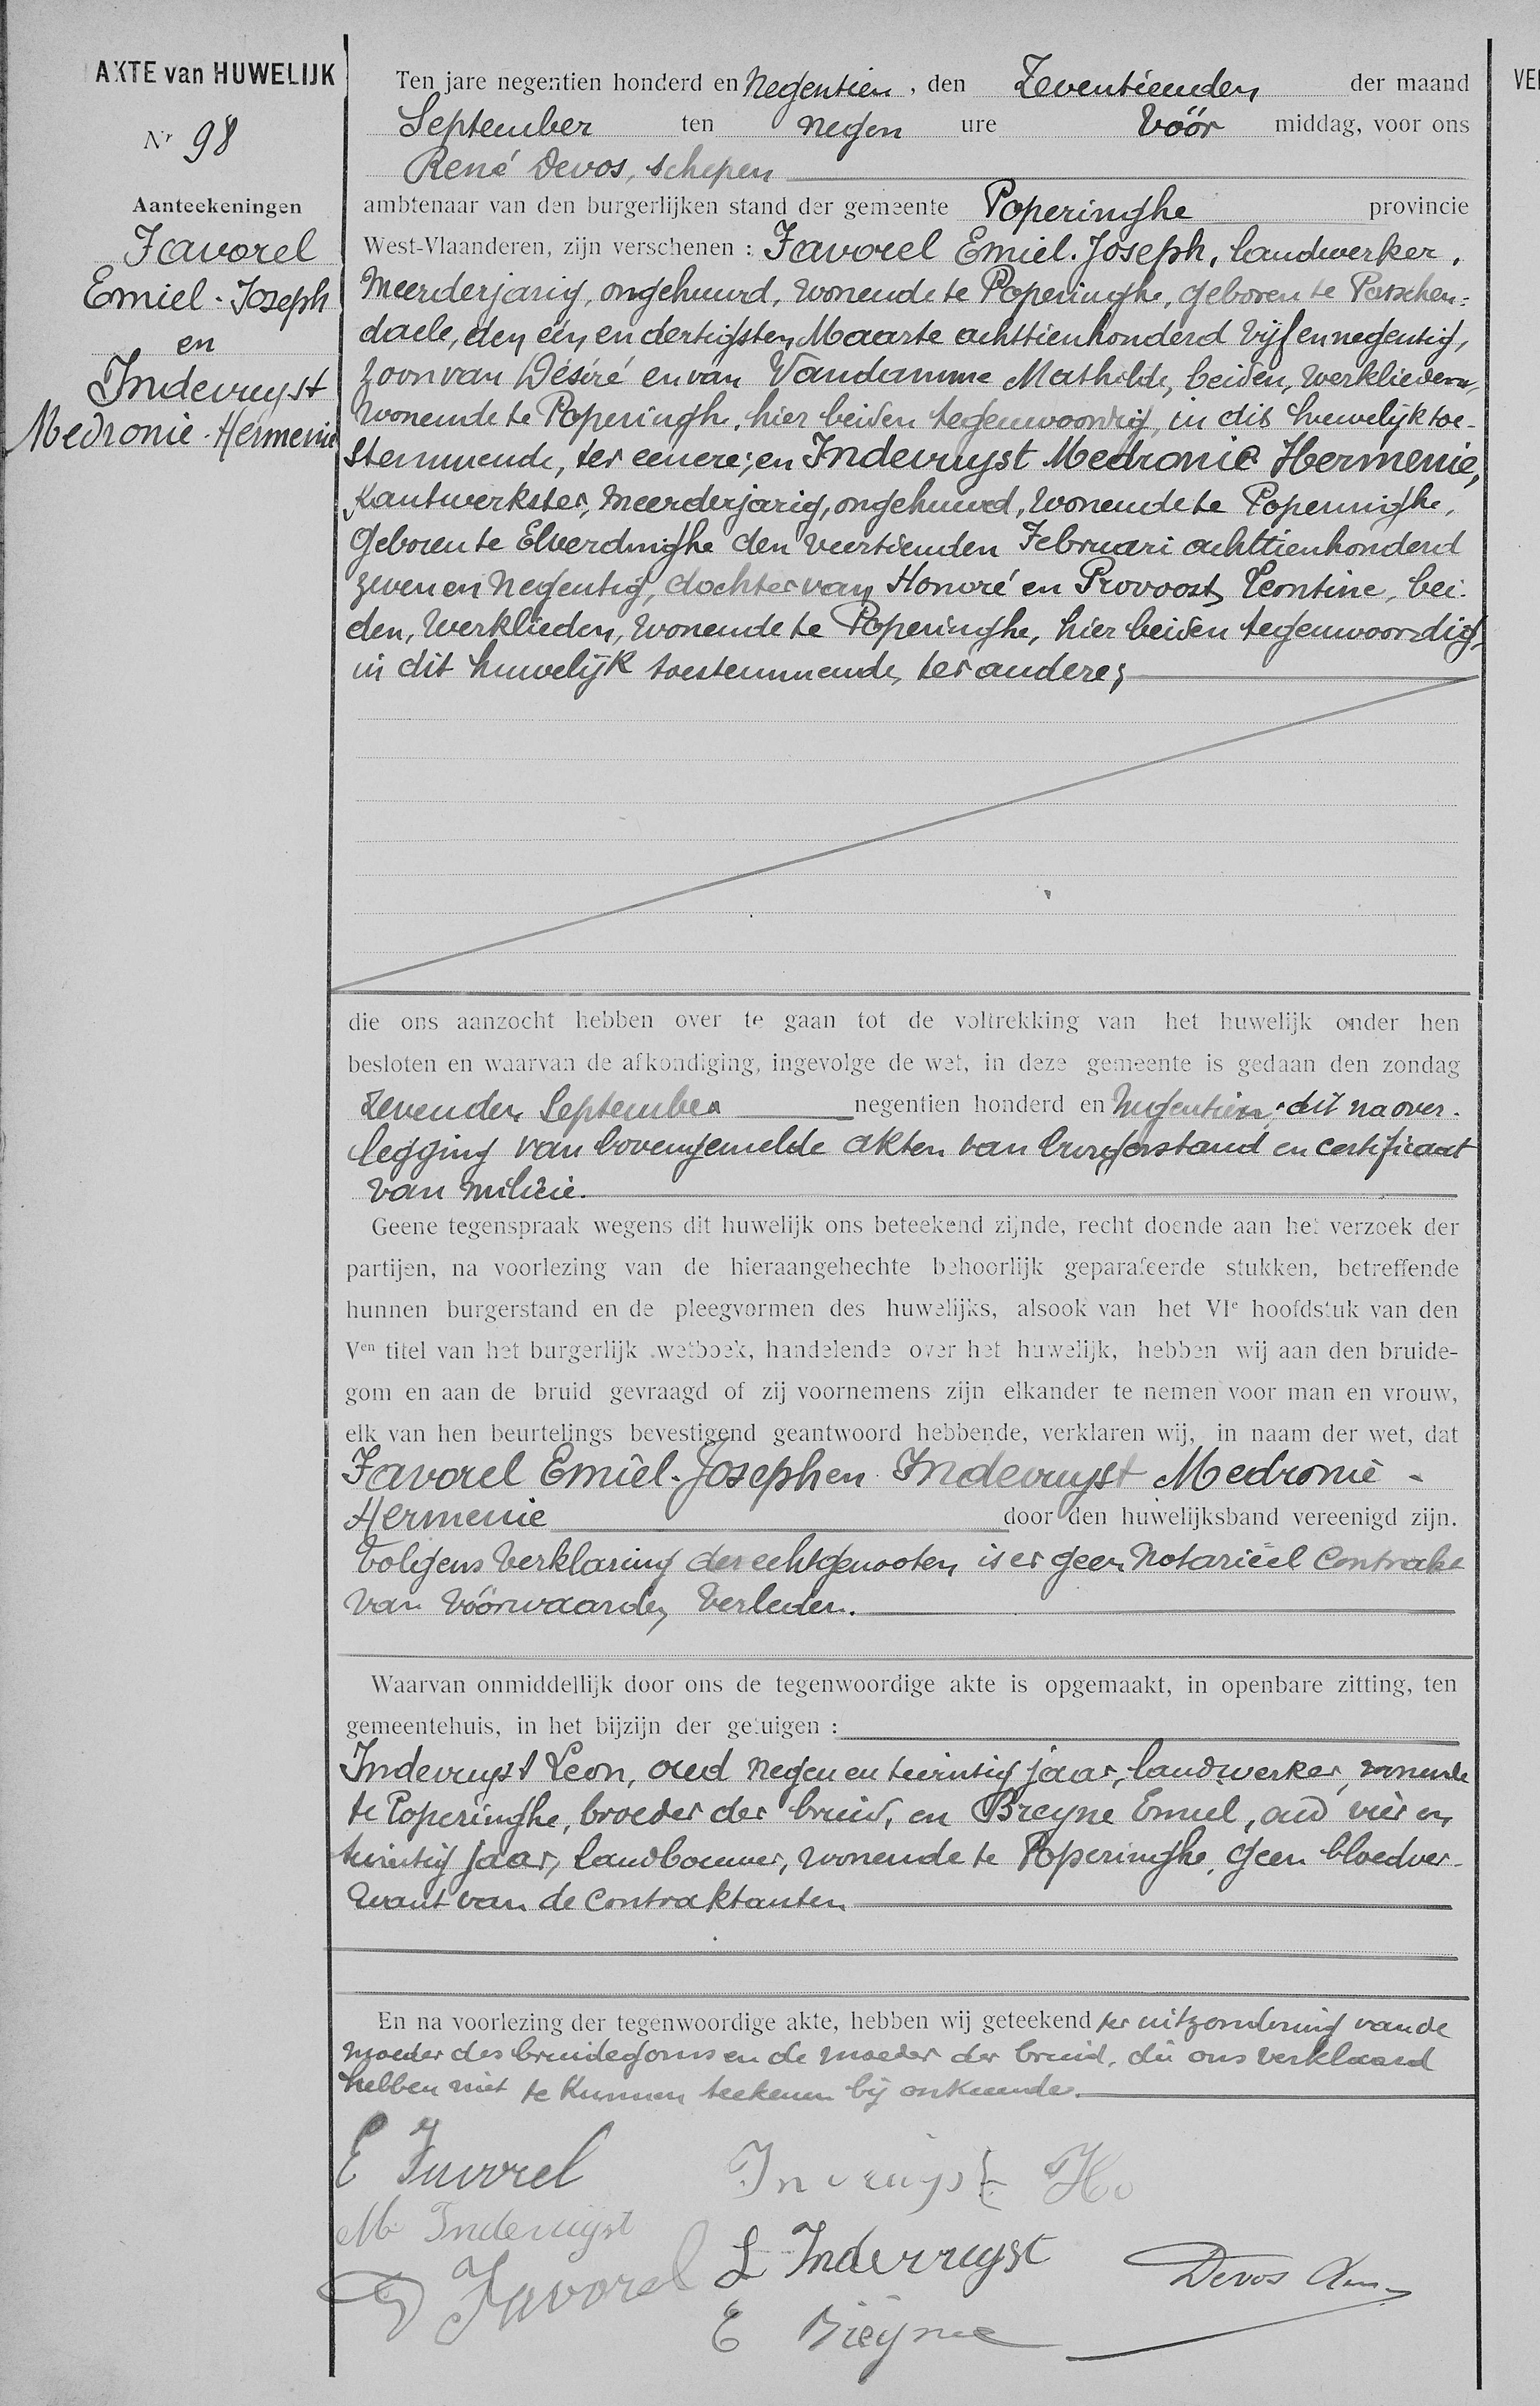 AKTE van HUWELIJK
Nr 98
Aanteekeningen
Favorel
Emiel-Joseph
en
Indevuyst
Medronie-Hermenie
Ten jare negentien honderd en Negentien, den Zeventienden der maand
September ten negen ure vóór middag, voor ons
René Devos, schepen
ambtenaar van den burgerlijken stand der gemeente Poperinghe provincie
West-Vlaanderen, zijn verschenen : Favorel Emiel-Joseph, landwerker,
Meerderjarig, ongehuwd, wonende te Poperinghe, geboren te Passchen-
daele, den een en dertigsten Maarte achttienhonderd vijf en negentig,
zoon van Désiré en van Vandamme Mathilde, beiden, werklieden,
wonende te Poperinghe, hier beiden tegenwoordig, in dit huwelijk toe-
stemmende, ter eenere; en Indevuyst Medronie Hermenie,
Kantwerkster, meerderjarig, ongehuwd, wonende te Poperinghe,
geboren te Elverdinghe den veertienden Februari achttienhonderd
zeven en negentig, dochter van Honoré en Provoost Leontine, bei-
den, werklieden, wonende te Poperinghe, hier beiden tegenwoordig,
in dit huwelijk toestemmende, ter andere;
die ons aanzocht hebben over te gaan tot de voltrekking van het huwelijk onder hen
besloten en waarvan de afkondiging, ingevolge de wet, in deze gemeente is gedaan den zondag
zevenden September negentien honderd en Negentien; dit na over-
legging van bovengemelde akten van burgerstand en certificaat
van milicie.
Geene tegenspraak wegens dit huwelijk ons beteekend zijnde, recht doende aan het verzoek der
partijen, na voorlezing van de hieraangehechte behoorlijk geparafeerde stukken, betreffende
hunnen burgerstand en de pleegvormen des huwelijks, alsook van het VIe hoofdstuk van den
Ven titel van het burgerlijk wetboek, handelende over het huwelijk, hebben wij aan den bruide-
gom en aan de bruid gevraagd of zij voornemens zijn elkander te nemen voor man en vrouw,
elk van hen beurtelings bevestigend geantwoord hebbende, verklaren wij, in naam der wet, dat
Favorel Emiel-Joseph en Indevuyst Medronie-
Hermenie door den huwelijksband vereenigd zijn.
Volgens verklaring der echtgenooten is er geen Notarieel Contrakt
van vóórwaarden verleden.
Waarvan onmiddellijk door ons de tegenwoordige akte is opgemaakt, in openbare zitting, ten
gemeentehuis, in het bijzijn der getuigen :
Indevuyst Leon, oud negen en twintig jaar, landwerker, wonende
te Poperinghe, broeder der bruid, en Breyne Emiel, oud vier en
twintig jaar, landbouwer, wonende te Poperinghe, geen bloedver-
want van de Contraktanten
En na voorlezing der tegenwoordige akte, hebben wij geteekend ter uitzondering van de
moeder des bruidegoms en de moeder der bruid, die ons verklaard
hebben niet te kunnen teekenen bij onkunde.
E Favorel
Inveuyst Ho
M Indevuyst
L Indevruyst
D Favorel
Devos
E Breyne